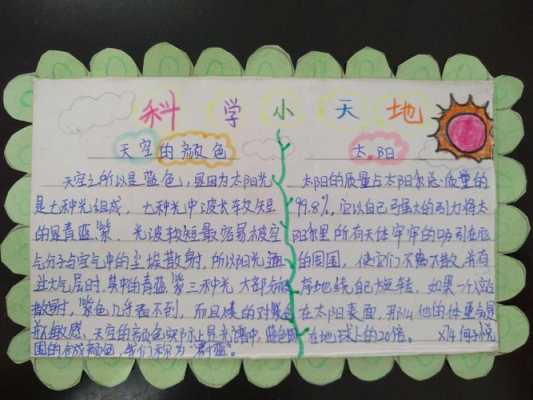 科学小天地
天空的颜色
天空之所以是蓝色，是因为太阳光
是七种光组成，七种光中波长较短
的是青蓝紫，光波较短最容易被空
气分子与空气中的尘埃散射，所以阳光通
过大气层时，其中的青蓝，紫三种光大部分被
散射，紫色几乎看不到，而且的对
敏感，天空的颜色实际上是光谱中，蓝色
围的合成颜色，我们称为"蔚蓝"。
太阳
太阳的质量占太阳系总质量的
99.8%，它以自己强大的引力将太
阳系里所有天体牢牢的吸引在
的周围，使它们不离不散，井
有地绕自己旋转，如果一个人站
在太阳表面，那么他的体重会是
在地球上的20倍。